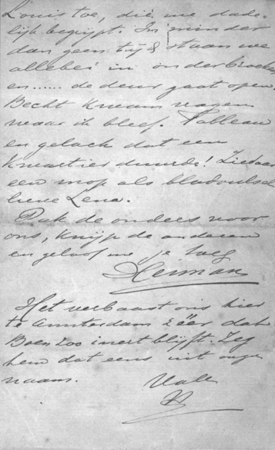 Louis toe, die me dade-
lijk begrijpt. In minder
dan geen tijd staan we
allebei in onderbroek
en...... de deur gaat open.
Becht kwam vragen
waar ik bleef. Tableau
en gelach dat een
kwartier duurde! Ziedaar
een mop als bladvulsel
lieve Lena.
Pak de ouders voor
ons, knijp de anderen
en geloof me je
Herman
Het verbaast ons hier
te Amsterdam zéér dat
Boen zoo inert blijft. Zeg
hem dat eens uit onze
naam.
Vale
H